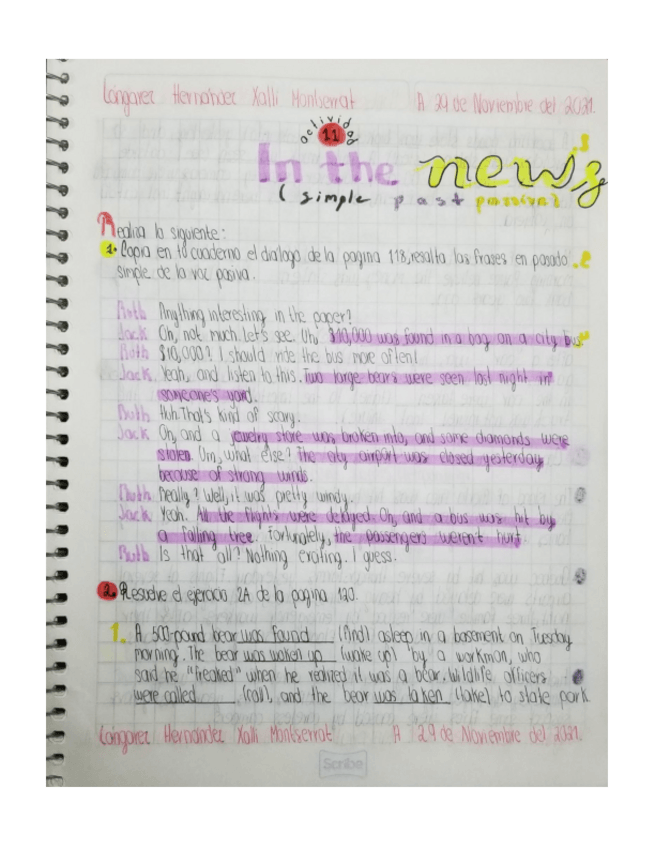 Longarez Hernandez Xalli Montserrat A 29 de Noviembre del 2021.
actividad
11
In the news's
(simple past passive)
Realiza lo siguiente:
1. Copia en tu cuaderno el dialogo de la pagina 118, resalta las frases en pasado
simple de la voz pasiva.
Ruth Anything interesting in the paper?
Jack Oh, not much. Let's see. Uh, $10,000 was found in a bag on a city bus
Ruth $10,000? I should ride the bus more often!
Jack. Yeah, and listen to this. Two large bears were seen last night in
someone's yard.
Ruth Huh. That's kind of scary.
Jack Oh, and a jewelry store was broken into, and some diamonds were
stolen. Um, what else? The city airport was closed yesterday
because of strong winds.
Ruth Really? Well, it was pretty windy.
Jack Yeah. All the flights were delayed. Oh, and a bus was hit by
a falling tree. Fortunately, the passengers weren't hurt
Ruth Is that all? Nothing exciting. I guess.
2. Resuelve el ejercicio 2A de la pagina 120.
1. A 500-pound bear was found (find) asleep in a basment on Tuesday
morning. The bear was waken up (wake up) by a workman, who
said he "freaked" when he realized it was a bear. Wildlife officers
were called (call), and the bear was taken (take) to state park
Longarez Hernandez Xalli Montserrat A 29 de Noviembre del 2021.
Scribe